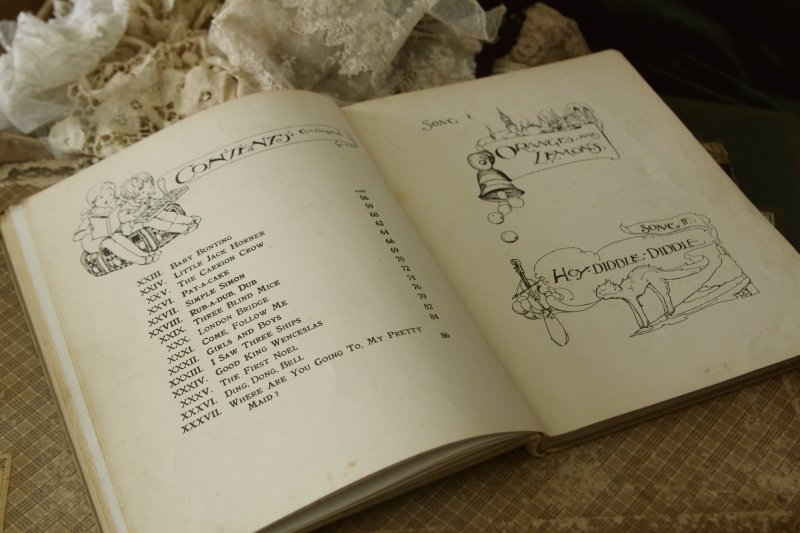 CONTENTS. Continued
PAGE
XXIII. BABY BUNTING 56
XXIV. LITTLE JACK HORNER 59
XXV. THE CARRION CROW 60
XXVI. PAT-A-CAKE 62
XXVII. SIMPLE SIMON 64
XXVIII. RUB-A-DUB, DUB 66
XXIX. THREE BLIND MICE 69
XXX. LONDON BRIDGE 70
XXXI. COME, FOLLOW ME 72
XXXII. GIRLS AND BOYS 74
XXXIII. I SAW THREE SHIPS 76
XXXIV. GOOD KING WENCESLAS 79
XXXV. THE FIRST NOEL 82
XXXVI. DING, DONG, BELL 84
XXXVII. WHERE ARE YOU GOING TO, MY PRETTY 86
MAID?
SONG I.
ORANGES AND
LEMONS.
SONG II
HEY-DIDDLE-DIDDLE.